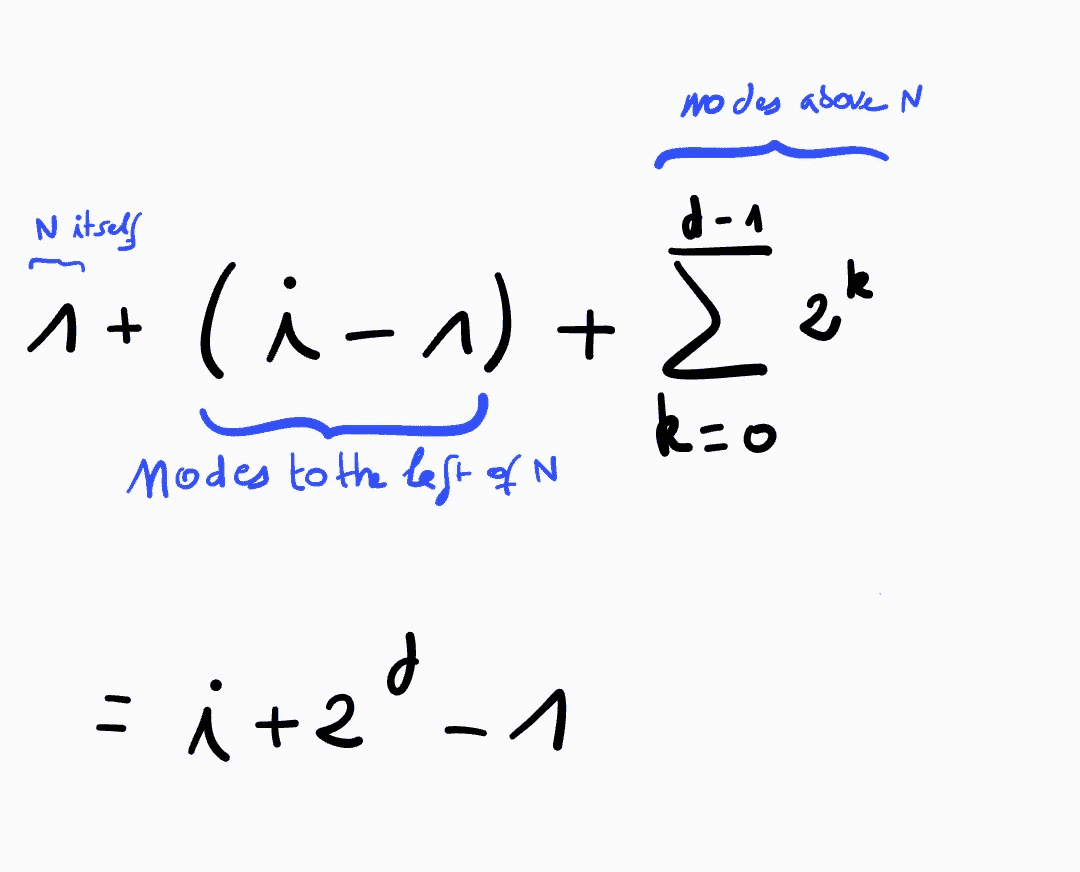 modes above N
N itself
1 + (i - 1) + \sum_{k=0}^{d-1} 2^k
Modes to the left of N
= i + 2^d - 1